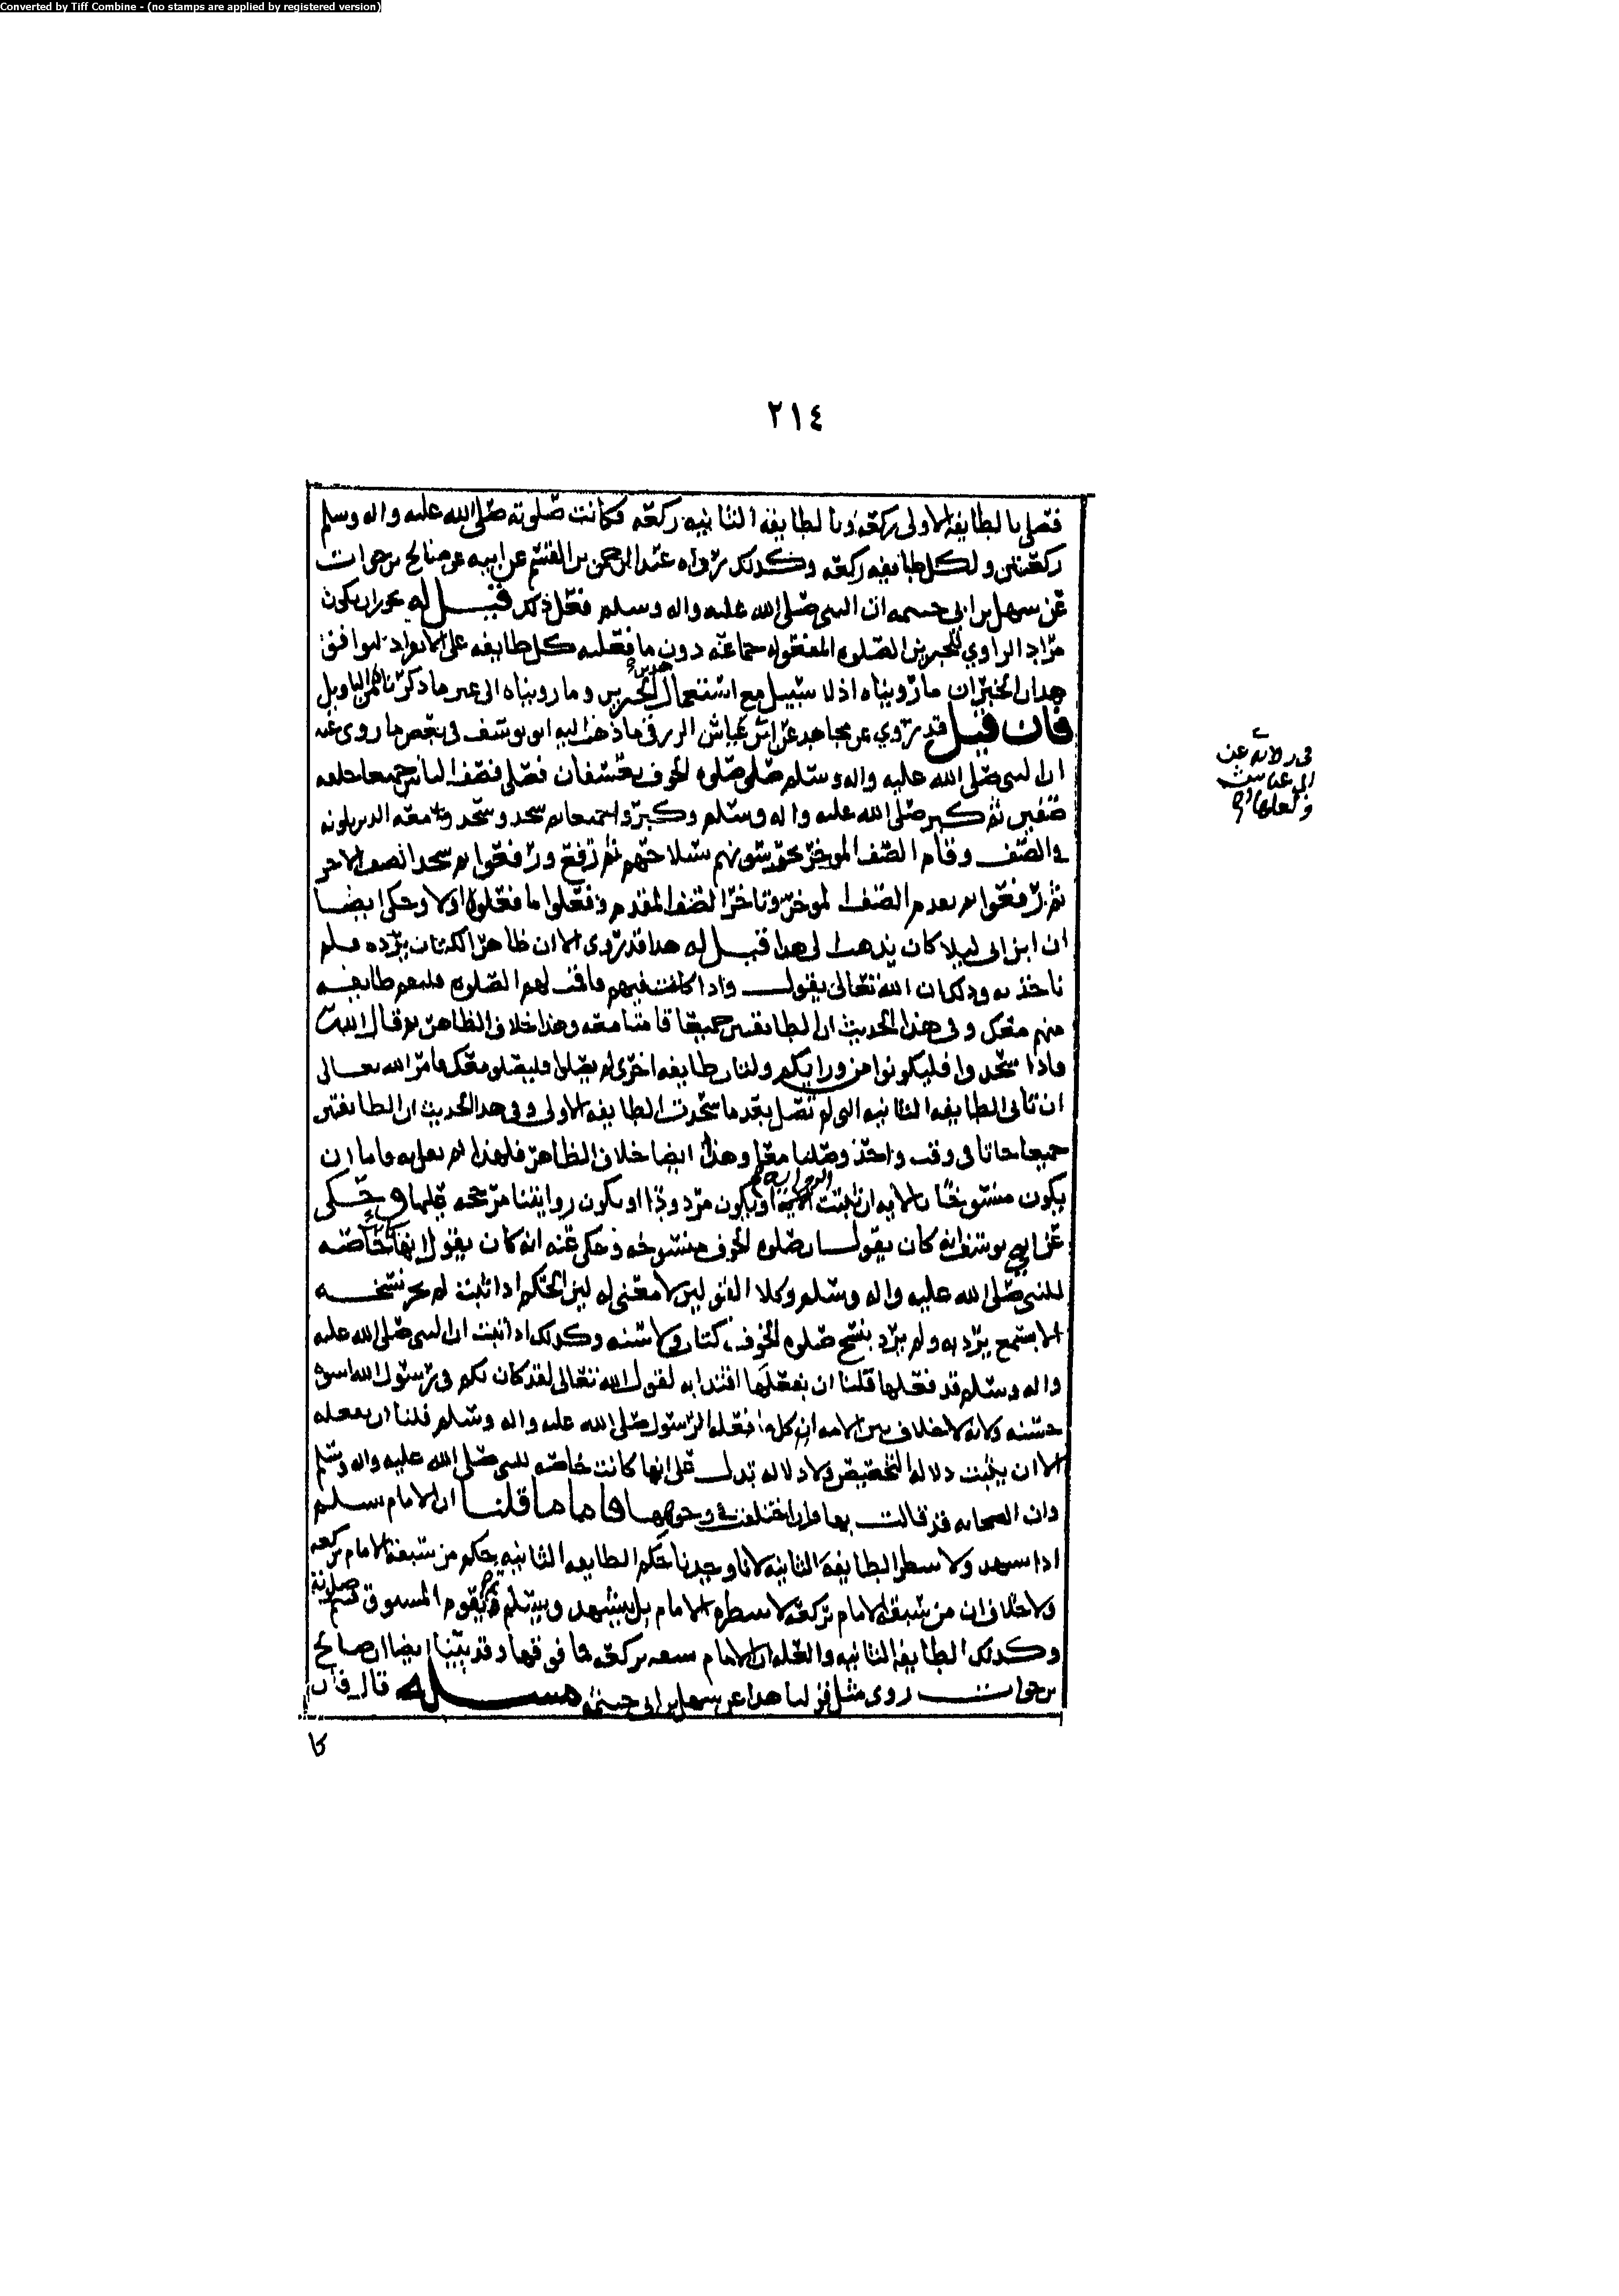 Converted by Tiff Combine - (no stamps are applied by registered version)
٢١٤
فصلى بالطايفه الاولى ركعه وبالطايفه الثانيه ركعه فكانت صلوته صلى الله عليه واله وسلم
ركعتين ولكل طايفه ركعه وكذلك رواه عبد الرحمن بن القسم عن ابيه عن صالح بن خوات
عن سهل بن ابي حسمه ان النبي صلى الله عليه واله وسلم فعل ذلك قيل له يجوز ان يكون
مراد الراوي للخبرين الصلوه المفعوله جماعه دون ما فعلته كل طايفه على الانفراد ليوافق
هذان الخبران ما رويناه اذ لا سبيل مع استعمال هذين الخبرين وما رويناه الى غير ما ذكرناه من التاويل
فان قيل قد روي عن مجاهد عن ابي عياش الزرقي ما ذهب اليه ابو يوسف في بعض ما روى عنه
ان النبي صلى الله عليه واله وسلم صلى صلوه الخوف بعسفان فصلى فصف الناس جميعا خلفه
صفين ثم كبر صلى الله عليه واله وسلم وكبروا جميعا ثم سجد وسجد معه الذين يلونه
في الصف وقام الصف الموخر يحرسونهم بسلاحهم ثم رفع ورفعوا ثم سجد الصف الاخر
ثم رفعوا ثم تقدم الصف الموخر وتاخر الصف المقدم وفعلوا ما فعلوه اولا وحكى ايضا
ان ابن ابي ليلا كان يذهب الى هذا قيل له هذا قد روى الا ان ظاهر الكتاب يرده فلم
ناخذ به وذلك ان الله تعالى يقول واذا كنت فيهم فاقمت لهم الصلوه فلتقم طايفه
منهم معك وفي هذا الحديث ان الطايفتين جميعا قامتا معه وهذا خلاف الظاهر ثم قال الله
فاذا سجدوا فليكونوا من ورايكم ولتات طايفه اخرى لم يصلوا فليصلوا معك فامر الله تعالى
ان تاتي الطايفه الثانيه التي لم تصل بعد ما سجدت الطايفه الاولى وفي هذا الحديث ان الطايفتين
جميعا جاتا في وقت واحد وصليا معا وهذا ايضا خلاف الظاهر فلهذا لم نعمل به فاما ان
يكون منسوخا بالايه ان ثبتت الروايه او يكون مردودا او يكون روايتنا مرجحه عليها وحكى
عن ابي يوسف انه كان يقول ان صلوه الخوف منسوخه وحكى عنه انه كان يقول انها كانت خاصه
للنبي صلى الله عليه واله وسلم وكلا القولين لا معنى له لان الحكم اذا ثبت لم يجز نسخه
الا بسمع يرد به ولم يرد بنسخ صلوه الخوف كتاب ولا سنه وكذلك اذا ثبت ان النبي صلى الله عليه
واله وسلم قد فعلها قلنا ان نفعلها اقتدا به لقول الله تعالى لقد كان لكم في رسول الله اسوه
حسنه ولانه لا خلاف بين الامه ان كل ما فعله الرسول صلى الله عليه واله وسلم فلنا ان نفعله
الا ان يثبت دلاله التخصيص ولا دلاله تدل على انها كانت خاصه للنبي صلى الله عليه واله وسلم
وان الصحابه قد قالت بها وان اختلفت في وجوهها فاما ما قلنا ان الامام يسلم
اذا تشهد ولا ينتظر الطايفه الثانيه لانا وجدنا حكم الطايفه الثانيه حكم من سبقه الامام بركعه
ولا خلاف ان من سبقه الامام بركعه لا ينتظره الامام بل يتشهد ويسلم ثم يقوم المسبوق فيتم صلوته
وكذلك الطايفه الثانيه والعله ان الامام سبقه بركعه فما فوقها وقد بينا ايضا ان صالح
بن خوات روى مثل قولنا هذا عن سهل بن ابي حسمه مسله قال فان
كا
في رواية عن
ابي عياش